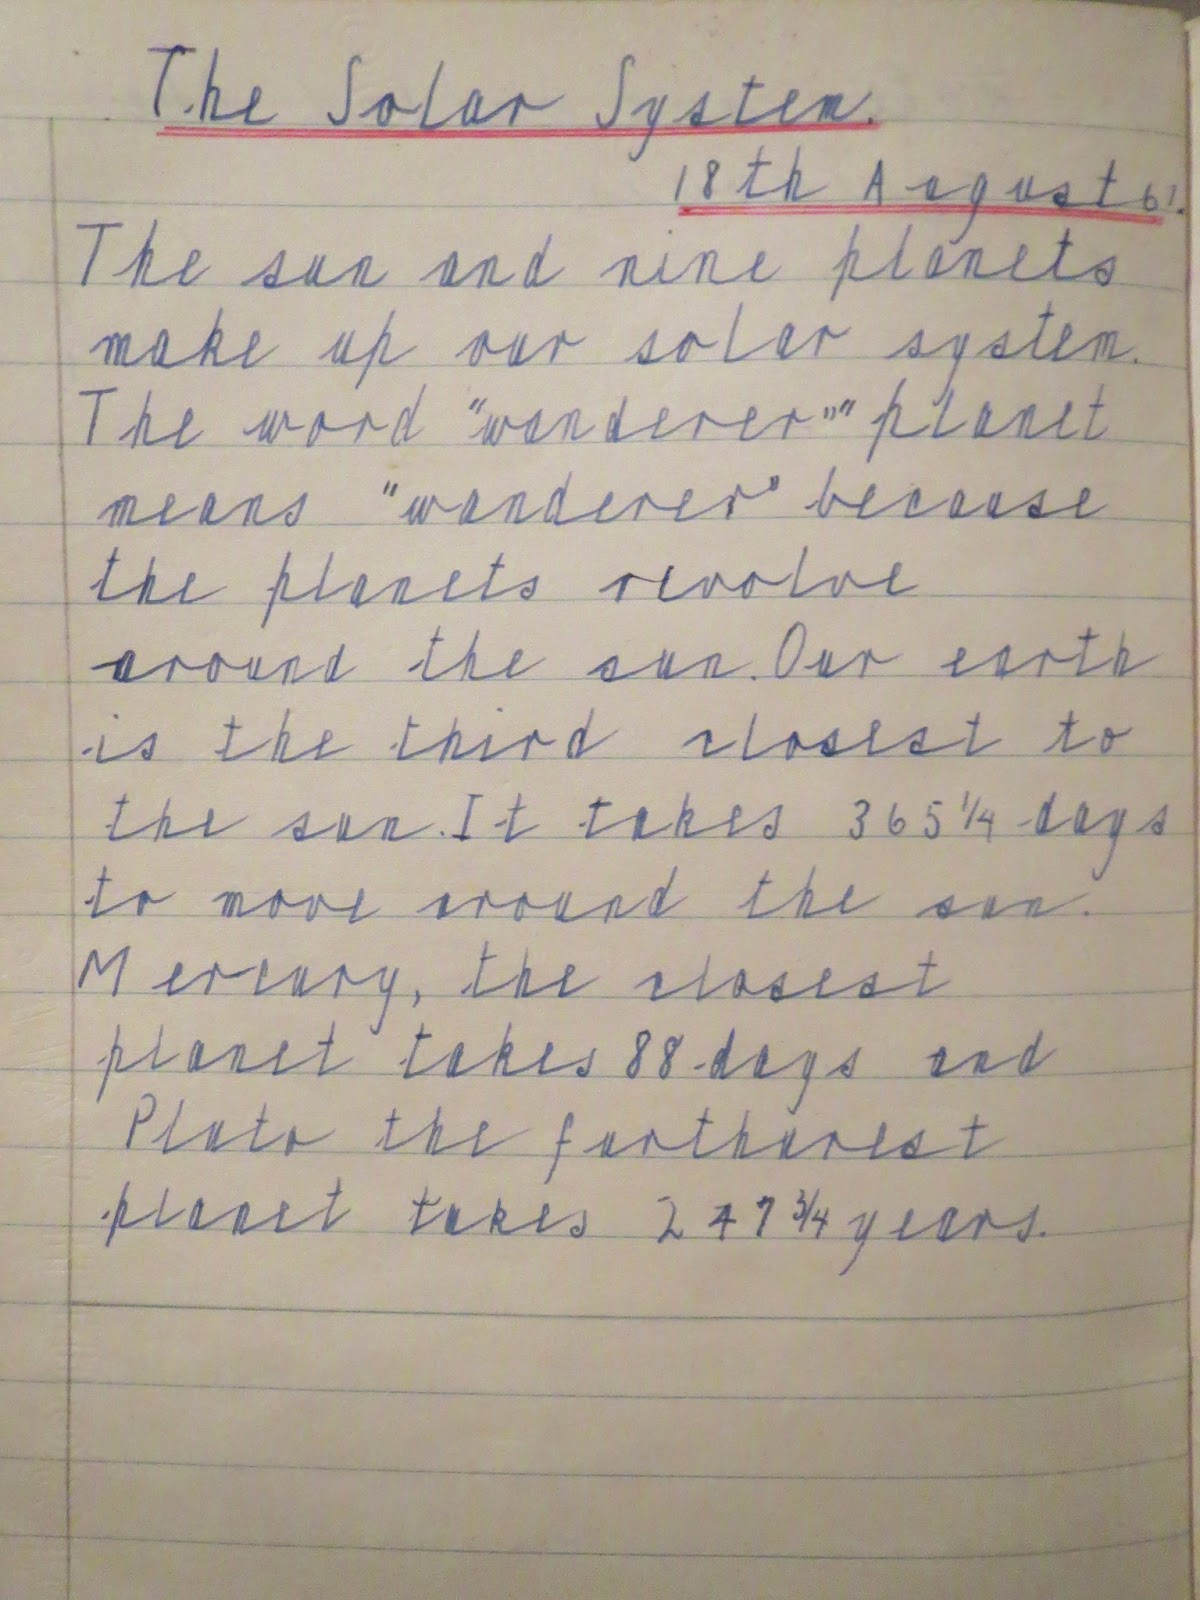 The Solar System.
18th August 61.
The sun and nine planets
make up our solar system.
The word "wanderer"" planet
means "wanderer" because
the planets revolve
around the sun. Our earth
is the third closest to
the sun. It takes 365 1/4 days
to move around the sun.
Mercury, the closest
planet takes 88 days and
Pluto the furtharest
planet takes 247 3/4 years.